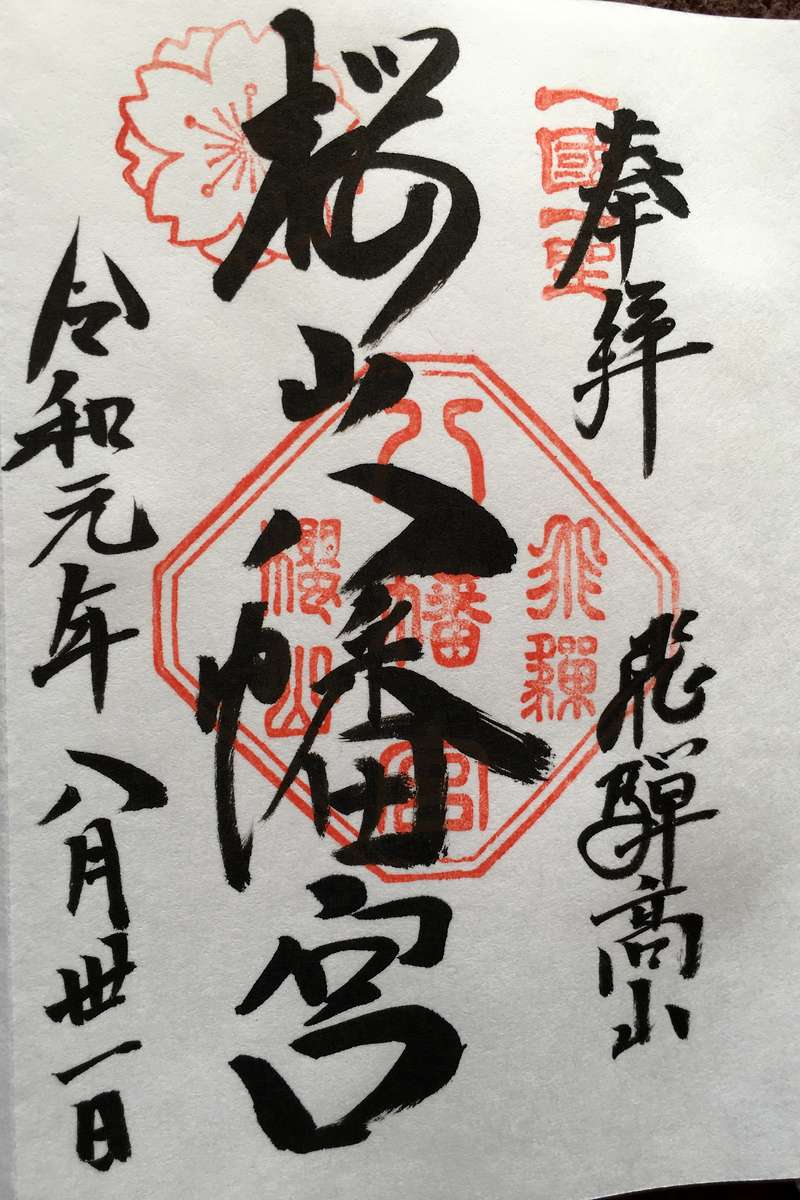 奉拝
飛騨高山
一國一宮
桜山八幡宮
八幡宮
飛騨
櫻山
令和元年八月卅一日